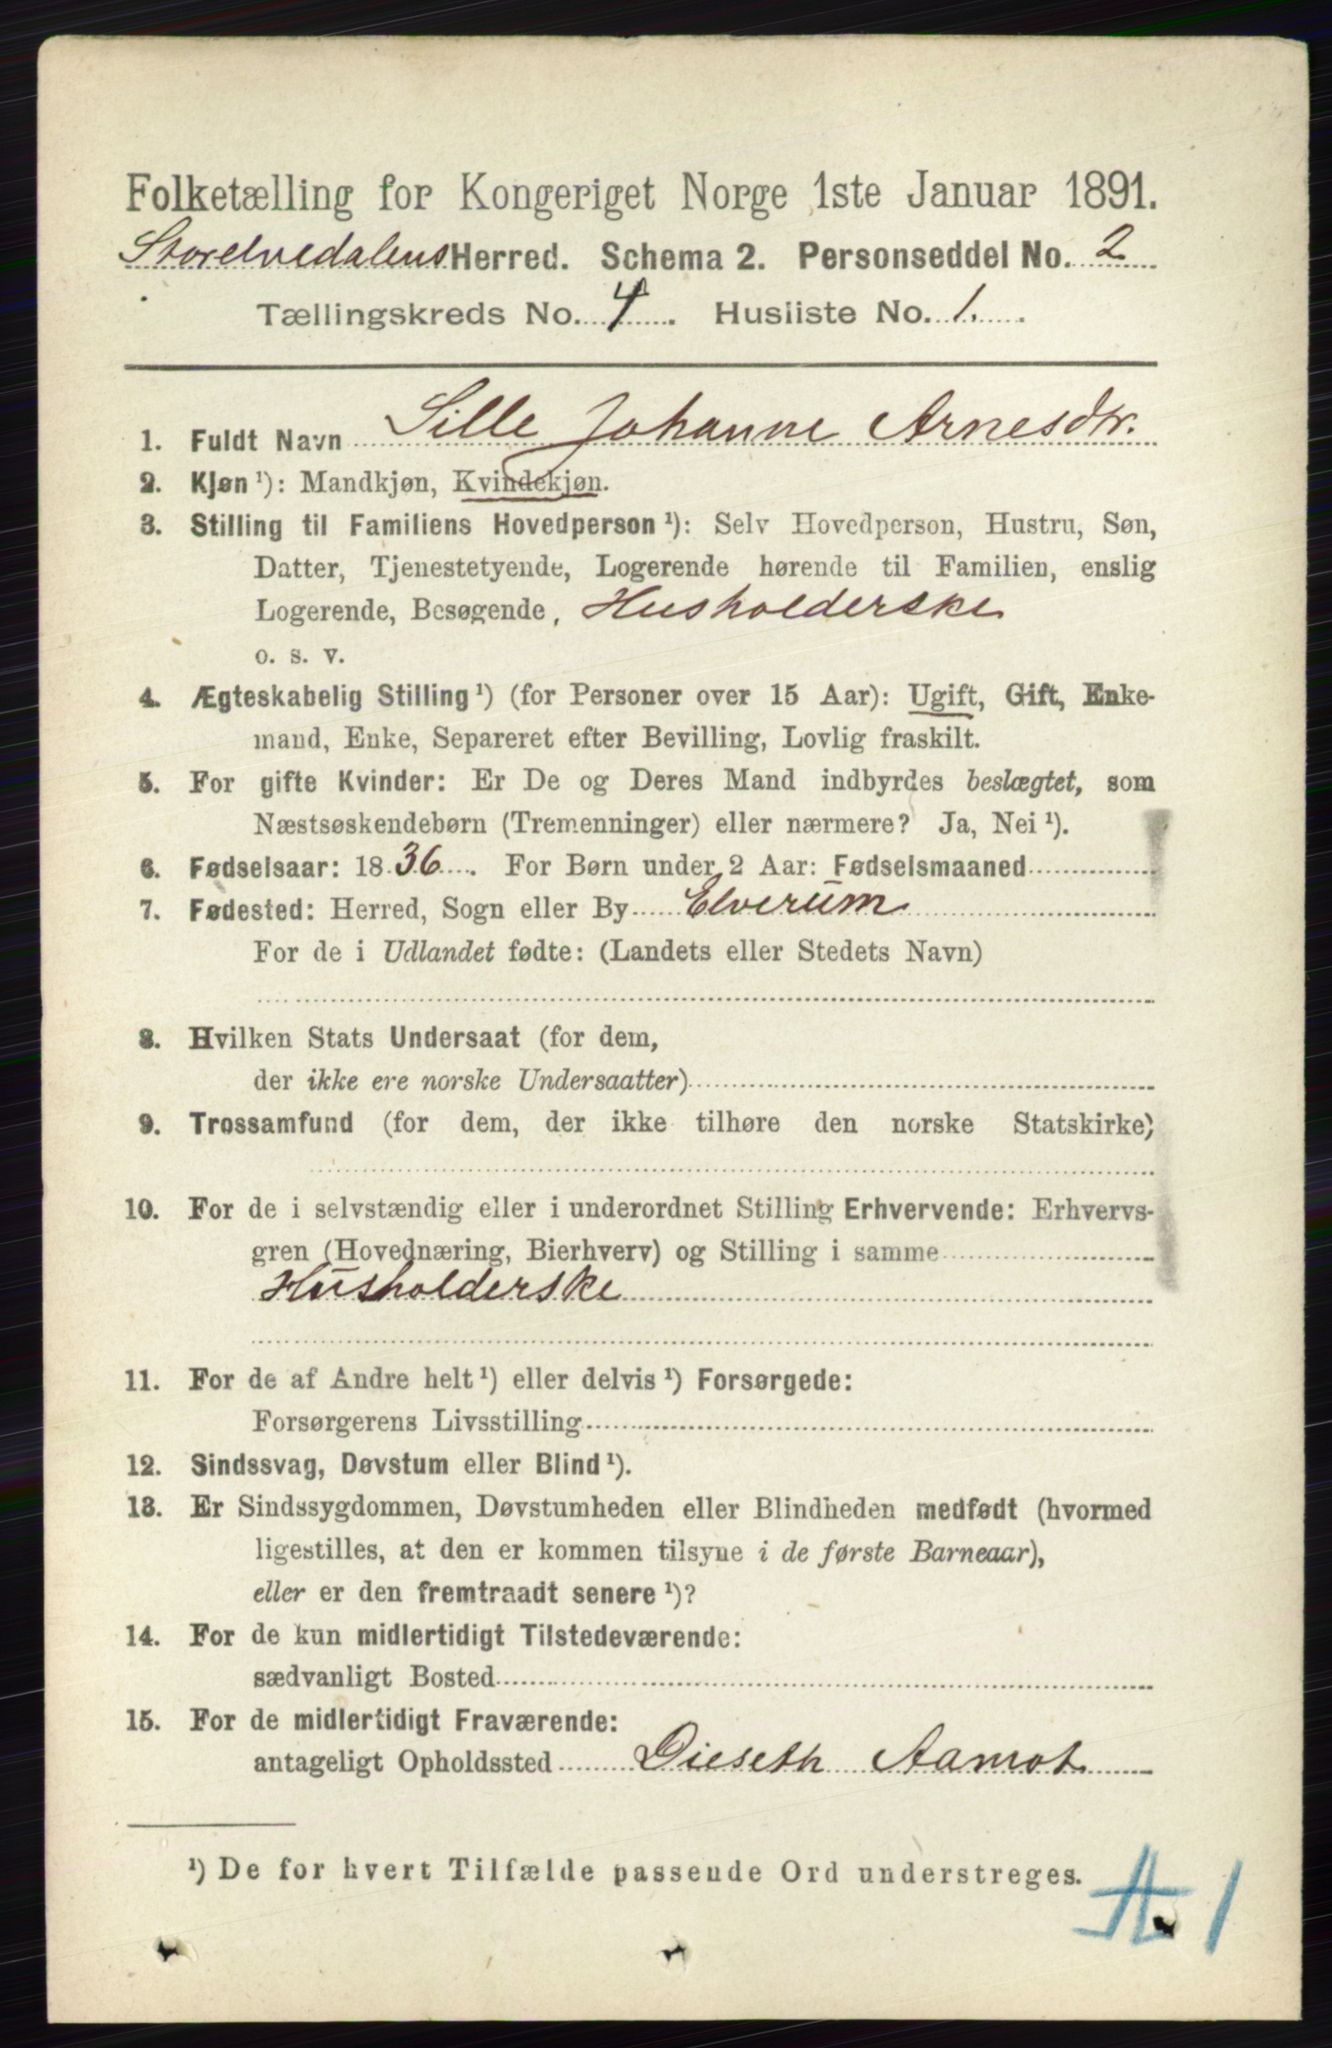 Folketælling for Kongeriget Norge 1ste Januar 1891.
Storelvedalens Herred. Schema 2. Personseddel No. 2
Tællingskreds No. 4. Husliste No. 1.
1. Fuldt Navn Sille Johanne Arnesdtr.
2. Kjøn ¹): Mandkjøn, Kvindekjøn.
3. Stilling til Familiens Hovedperson ¹): Selv Hovedperson, Hustru, Søn,
Datter, Tjenestetyende, Logerende hørende til Familien, enslig
Logerende, Besøgende, Husholderske
o. s. v.
4. Ægteskabelig Stilling ¹) (for Personer over 15 Aar): Ugift, Gift, Enke-
mand, Enke, Separeret efter Bevilling, Lovlig fraskilt.
5. For gifte Kvinder: Er De og Deres Mand indbyrdes beslægtet, som
Næstsøskendebørn (Tremenninger) eller nærmere? Ja, Nei ¹).
6. Fødselsaar: 1836. For Børn under 2 Aar: Fødselsmaaned
7. Fødested: Herred, Sogn eller By Elverum
For de i Udlandet fødte: (Landets eller Stedets Navn)
8. Hvilken Stats Undersaat (for dem,
der ikke ere norske Undersaatter)
9. Trossamfund (for dem, der ikke tilhøre den norske Statskirke)
10. For de i selvstændig eller i underordnet Stilling Erhvervende: Erhvervs-
gren (Hovednæring, Bierhverv) og Stilling i samme
Husholderske
11. For de af Andre helt ¹) eller delvis ¹) Forsørgede:
Forsørgerens Livsstilling
12. Sindssvag, Døvstum eller Blind ¹).
13. Er Sindssygdommen, Døvstumheden eller Blindheden medfødt (hvormed
ligestilles, at den er kommen tilsyne i de første Barneaar),
eller er den fremtraadt senere ¹)?
14. For de kun midlertidigt Tilstedeværende:
sædvanligt Bosted
15. For de midlertidigt Fraværende:
antageligt Opholdssted Dieseth Aamot
¹) De for hvert Tilfælde passende Ord understreges.
A. 1